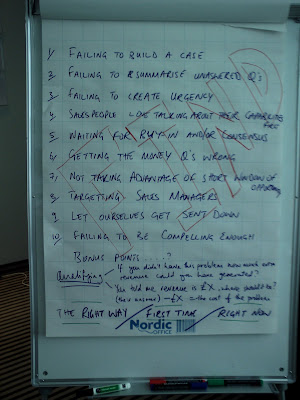 1/ FAILING TO BUILD A CASE
2/ FAILING TO SUMMARISE UNANSWERED Q's
3/ FAILING TO CREATE URGENCY
4/ SALESPEOPLE LOVE TALKING ABOUT THEIR CAPABILITIES
5/ WAITING FOR BUY-IN AND/OR CONSENSUS
6/ GETTING THE MONEY Q's WRONG
7/ NOT TAKING ADVANTAGE OF SHORT WINDOW OF
8/ TARGETTING SALES MANAGERS
9/ LET OURSELVES GET SENT DOWN
10/ FAILING TO BE COMPELLING ENOUGH
BONUS POINTS....?
Quantifying
If you didn't have this problem how much extra
revenue could you have generated?
You told me revenue is £X, where would it be?
(their answer) - £X = the cost of the problem
THE RIGHT WAY / FIRST TIME / RIGHT NOW
Nordic
OFFICE